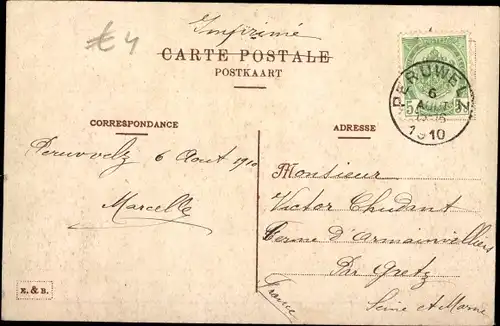 Imprimé
€ 4
CARTE POSTALE
POSTKAART
PERUWELZ
6
AOUT
1910
5 5
CORRESPONDANCE
ADRESSE
Peruwelz 6 Aout 1910
Marcelle
Monsieur
Victor Chudant
Ferme d'Armainvilliers
Par Gretz
Seine et Marne
France
E. & B.